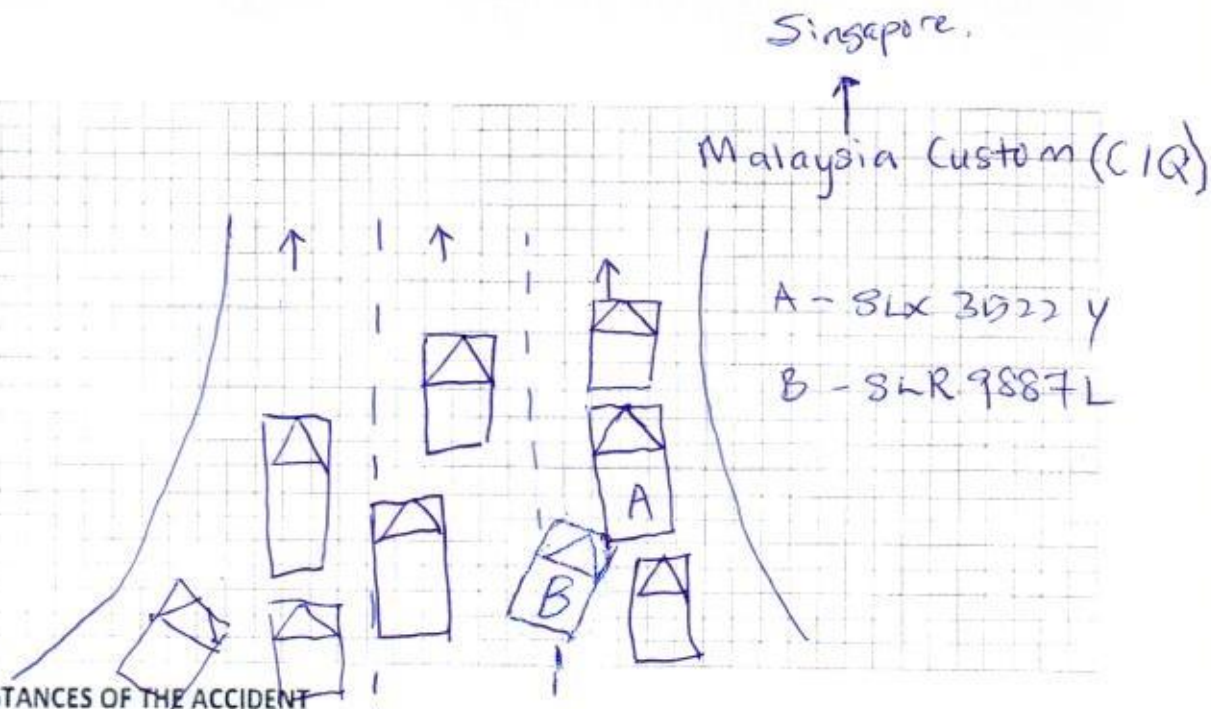 Singapore.
Malaysia Custom (CIQ)
A -
B - SLR 9887L
A
B
TANCES OF THE ACCIDENT